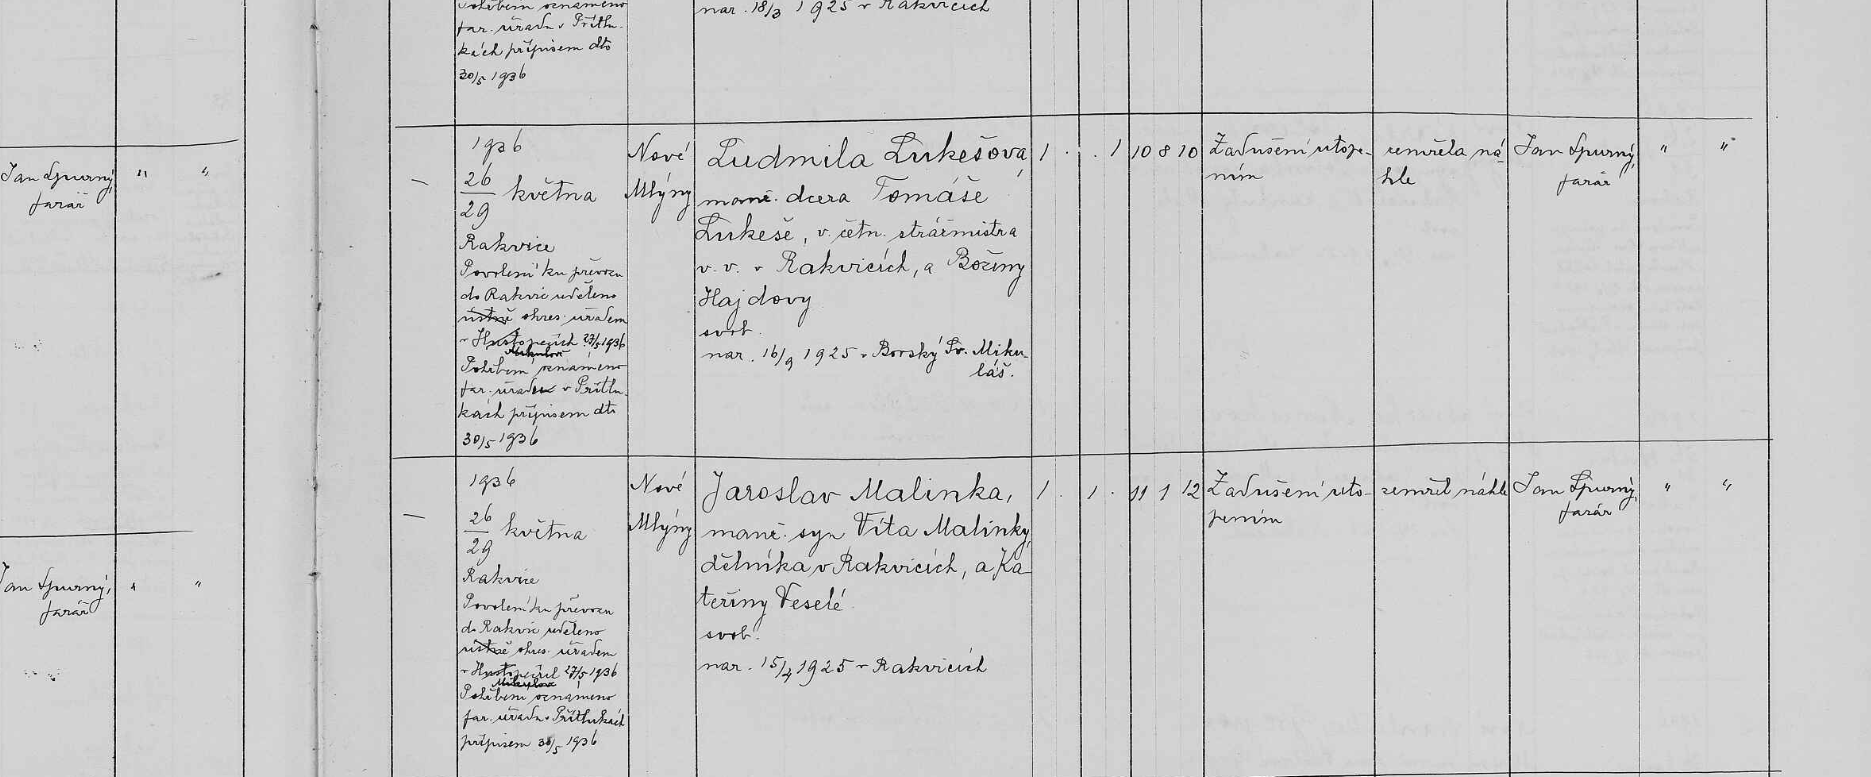 Pohřbem oznámeno
far. úřadu v Přítlu-
kách přípisem dto
30/5 1936
nar. 18/3 1925 v Rakvicích
Jan Spurný,
farář
"
"
—
1936
26
29
května
Rakvice
Povolení ku převozu
do Rakvic uděleno
ústně okres. úřadem
v Hustopečích 27/5 1936
Mikulově
Pohřbem oznámeno
far. úřadu v Přítlu-
kách přípisem dto
30/5 1936
Nové
Mlýny
Ludmila Lukešová,
manž. dcera Tomáše
Lukeše, v. četn. strážmistra
v. v. v Rakvicích, a Boženy
Hajdovy
svob.
nar. 16/9 1925 v Borský Sv. Miku
láš.
1 . . 1 10 8 10
Zadušení utope-
ním
zemřela ná-
hle
Jan Spurný,
farář
"
"
Jan Spurný,
farář
"
"
—
1936
26
29
května
Rakvice
Povolení ku převozu
do Rakvic uděleno
ústně okres. úřadem
v Hustopečích 27/5 1936
Mikulově
Pohřbem oznámeno
far. úřadu v Přítlukách
přípisem 30/5 1936
Nové
Mlýny
Jaroslav Malinka,
manž. syn Víta Malinky,
dělníka v Rakvicích, a Ka-
teřiny Veselé.
svob.
nar. 15/4 1925 v Rakvicích
1 . 1 . 11 1 12
Zadušení uto-
pením
zemřel náhle
Jan Spurný,
farář
"
"